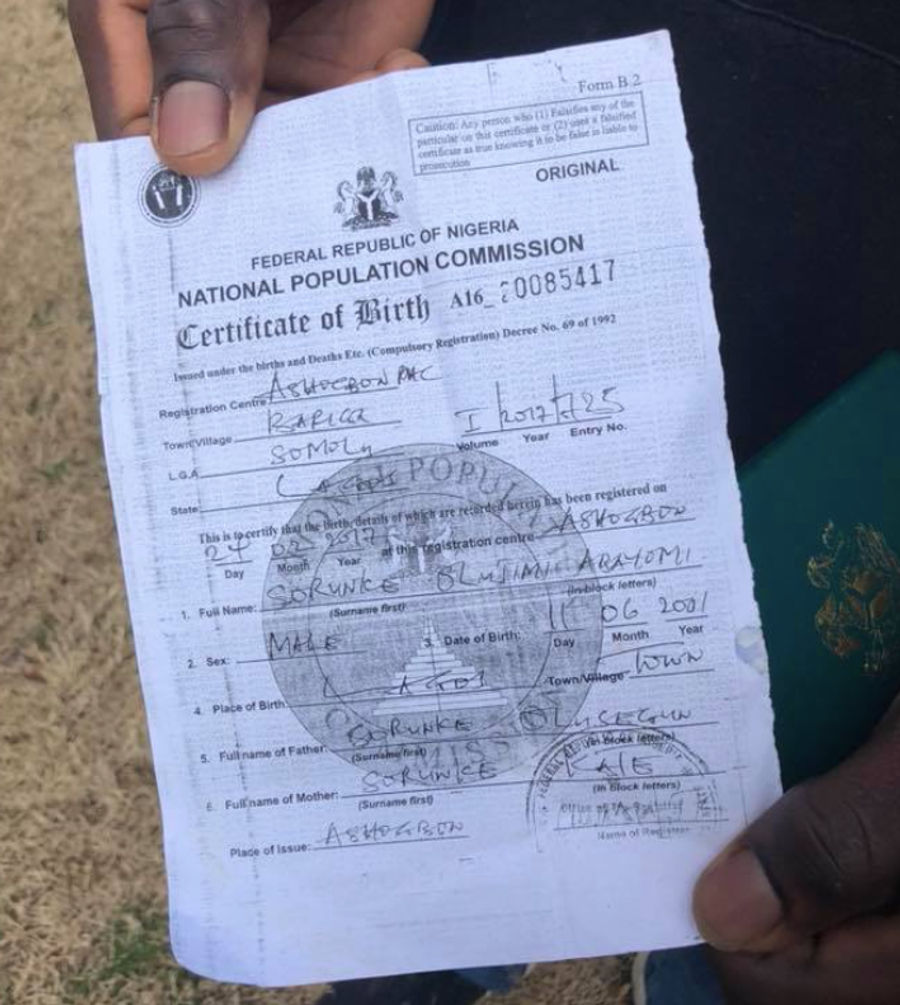 Form B 2
Caution: Any person who (1) Falsifies any of the
particular on this certificate or (2) uses a falsified
certificate as true knowing it to be false is liable to
prosecution
ORIGINAL
FEDERAL REPUBLIC OF NIGERIA
NATIONAL POPULATION COMMISSION
Certificate of Birth A16_20085417
Issued under the births and Deaths Etc. (Compulsory Registration) Decree No. 69 of 1992
Registration Centre ASHOGBON PHC
Town/Village BARIGA I 2017 725
L.G.A SOMOLU Volume Year Entry No.
State LAGOS
This is to certify that the Birth, details of which are recorded herein has been registered on
27 02 2017 at this registration centre ASHOGBON
Day Month Year
1. Full Name: SORUNKE OLUJIMI ARAYOMI
(Surname first) (In block letters)
2. Sex: MALE 3. Date of Birth: 11 06 2001
Day Month Year
4. Place of Birth LAGOS Town/Village TOWN
5. Full name of Father: SORUNKE OLUSEGUN
(Surname first) (In block letters)
6. Full name of Mother: SORUNKE KAIE
(Surname first) (In block letters)
Place of Issue: ASHOGBON
Name of Registrar